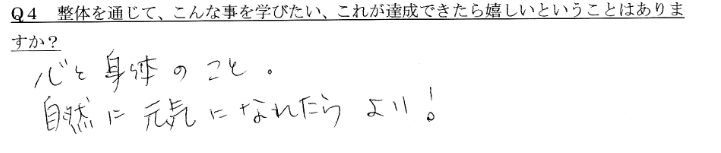 Q4　整体を通じて、こんな事を学びたい、これが達成できたら嬉しいということはありま
すか？
心と身体のこと。
自然に元気になれたら より！